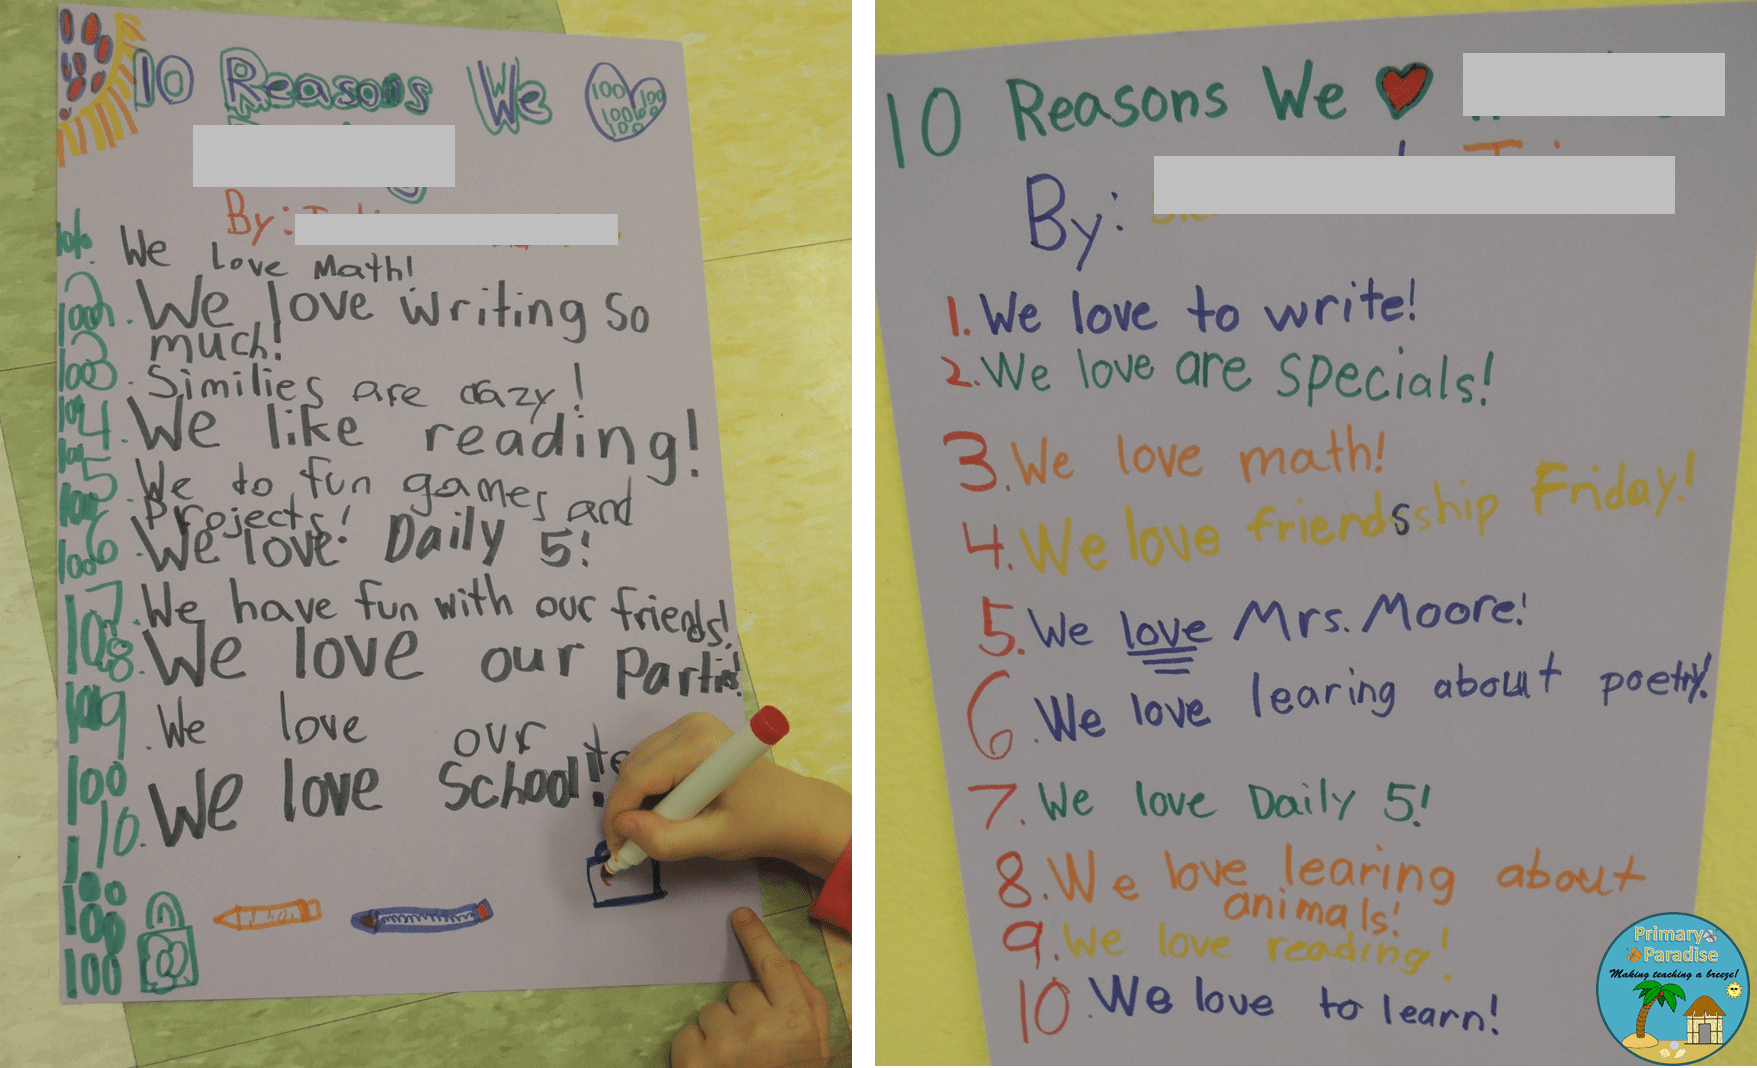 10 Reasons We
100 100
100
100
By:
1. We love Math!
2. We love writing so
much!
3. Similies are crazy!
4. We like reading!
5. We do fun games and
Projects!
6. We love Daily 5!
7. We have fun with our friends!
8. We love our Parties!
9. We love our
10. We love School!
100
100
100
100
10 Reasons We
By:
1. We love to write!
2. We love are specials!
3. We love math!
4. We love friendsship Friday!
5. We love Mrs. Moore!
6. We love learing about poetry!
7. We love Daily 5!
8. We love learing about
animals!
9. We love reading!
10. We love to learn!
Primary
Paradise
Making teaching a breeze!